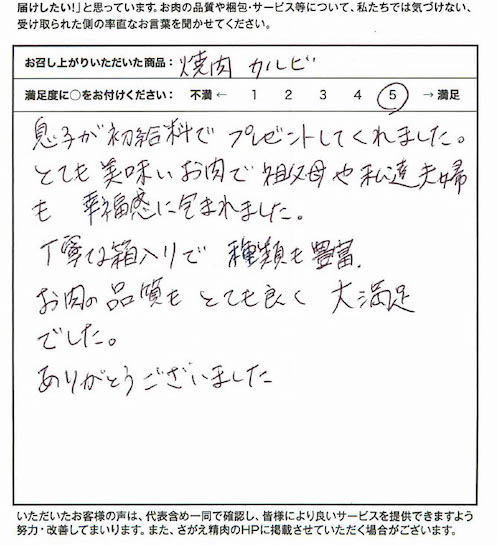 届けしたい!」と思っています。お肉の品質や梱包・サービス等について、私たちでは気づけない、
受け取られた側の率直なお言葉を聞かせてください。
お召し上がりいただいた商品: 焼肉 カルビ
満足度に○をお付けください: 不満 ← 1 2 3 4 5 → 満足
息子が初給料でプレゼントしてくれました。
とても美味いお肉で祖父母や私達夫婦
も 幸福感に包まれました。
丁寧な箱入りで 種類も豊富.
お肉の品質も とても良く 大満足
でした。
ありがとうございました
いただいたお客様の声は、代表含め一同で確認し、皆様により良いサービスを提供できますよう
努力・改善してまいります。また、さがえ精肉のHPに掲載させていただく場合がございます。